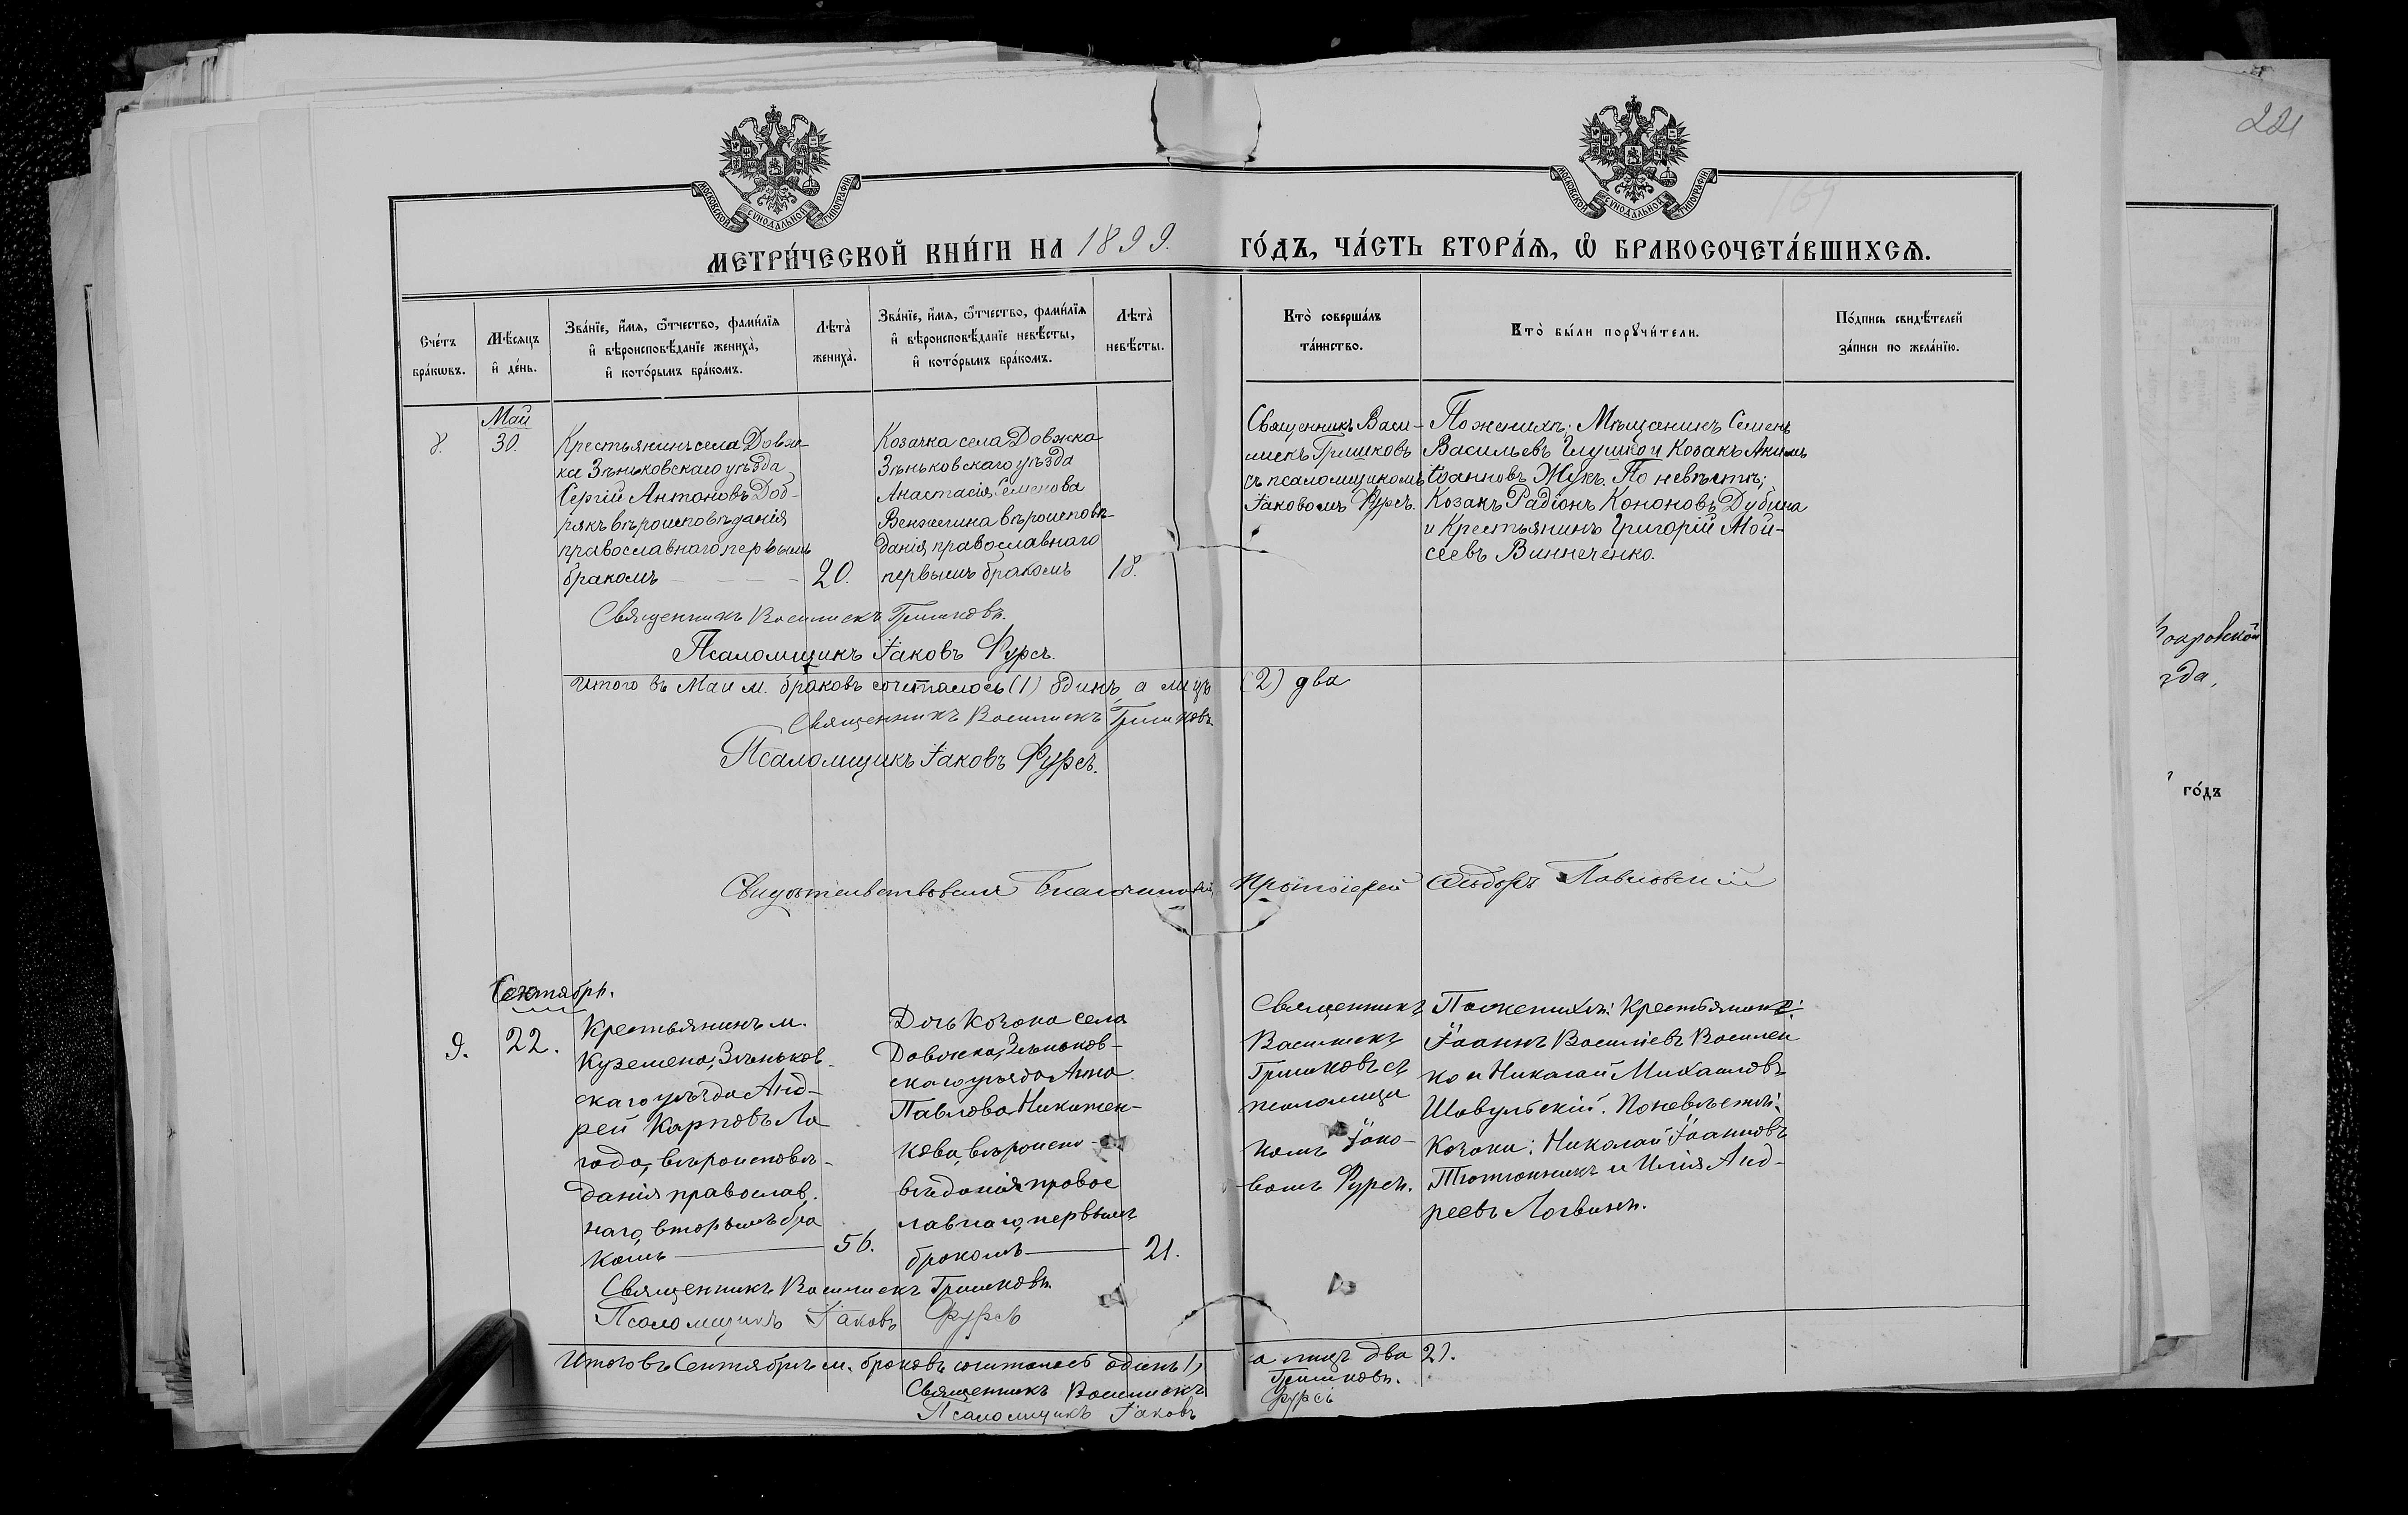 221
169
МОСКОВСКОЙ СѴНОДАЛЬНОЙ ТИПОГРАФІИ
МОСКОВСКОЙ СѴНОДАЛЬНОЙ ТИПОГРАФІИ
МЕТРИ́ЧЕСКОЙ КНИ́ГИ НА 1899. ГО́ДЪ, ЧА́СТЬ ВТОРА́Я, Ѽ БРАКОСОЧЕТА́ВШИХСѦ.
Сче́тъ
бра́кѡвъ.
Мѣ́сяцъ
и҆ де́нь.
Зва́нїе, и҆́мѧ, ѻ҆́тчество, фами́лїѧ
и҆ вѣроисповѣ́данїе жениха̀,
и҆ кото́рымъ бра́комъ.
Лѣта̀
жениха̀.
Зва́нїе, и҆́мѧ, ѻ҆́тчество, фами́лїѧ
и҆ вѣроисповѣ́данїе невѣ́сты,
и҆ кото́рымъ бра́комъ.
Лѣта̀
невѣ́сты.
Кто̀ соверша́лъ
та́инство.
Кто̀ бы́ли порꙋчи́тели.
По́дпись свидѣ́телей
за́писи по жела́нїю.
Май
8.
30.
Крестьянинъ села Довж-
ка Зѣньковскаго уѣзда
Сергій Антоновъ Доб-
рякъ вѣроисповѣданія
православнаго первымъ
бракомъ
20.
Козачка села Довжка
Зѣньковскаго уѣзда
Анастасія Семенова
Венжегина вѣроисповѣ-
данія православнаго
первымъ бракомъ
18.
Священникъ Васи-
лискъ Гришковъ
съ псаломщикомъ
Іаковомъ Фурсъ.
По женихѣ; Мѣщанинъ Семенъ
Васильевъ Глушко и Козакъ Акимъ
Іоанновъ Жукъ. По невѣстѣ;
Козакъ Радіонъ Кононовъ Дубина
и Крестьянинъ Григорій Мой-
сеевъ Винниченко.
Священникъ Василискъ Гришковъ.
Псаломщикъ Іаковъ Фурсъ.
Итого въ Маи м. браковъ сочеталось (1) одинъ, а лицъ (2) два
Священникъ Василискъ Гришковъ.
Псаломщикъ Іаковъ Фурсъ.
Свидѣтельствовалъ Благочинный, Протоіерей Ѳеодоръ Павловскій
Сентябрь.
9.
22.
Крестьянинъ м.
Куземена, Зѣньков-
скаго уѣзда Анд-
рей Карповъ Ла
года, вѣроисповѣ-
данія православ-
наго, вторымъ бра
комъ
56.
Дочь Козака села
Довжка, Зѣньков-
скаго уѣзда Анна
Павлова Никитен-
кова, вѣроиспо-
вѣданія правос
лавнаго, первымъ
бракомъ
21.
Священникъ
Василискъ
Гришковъ съ
псаломщи
комъ Іако-
вомъ Фурсъ.
По женихѣ: Крестьяне:
Іоаннъ Василіевъ Василен
ко и Николай Михаиловъ
Шавульскій. По невѣстѣ:
Козаки: Николай Іоанновъ
Тютюнникъ и Илія Анд-
реевъ Логвинъ.
Священникъ Василискъ Гришковъ.
Псаломщикъ Іаковъ Фурсъ
Итого въ Сентябрѣ м. браковъ сочеталось одинъ 1, а лицъ два 2).
Священникъ Василискъ Гришковъ.
Псаломщикъ Іаковъ Фурсъ
Покровской
зда,
го́дъ